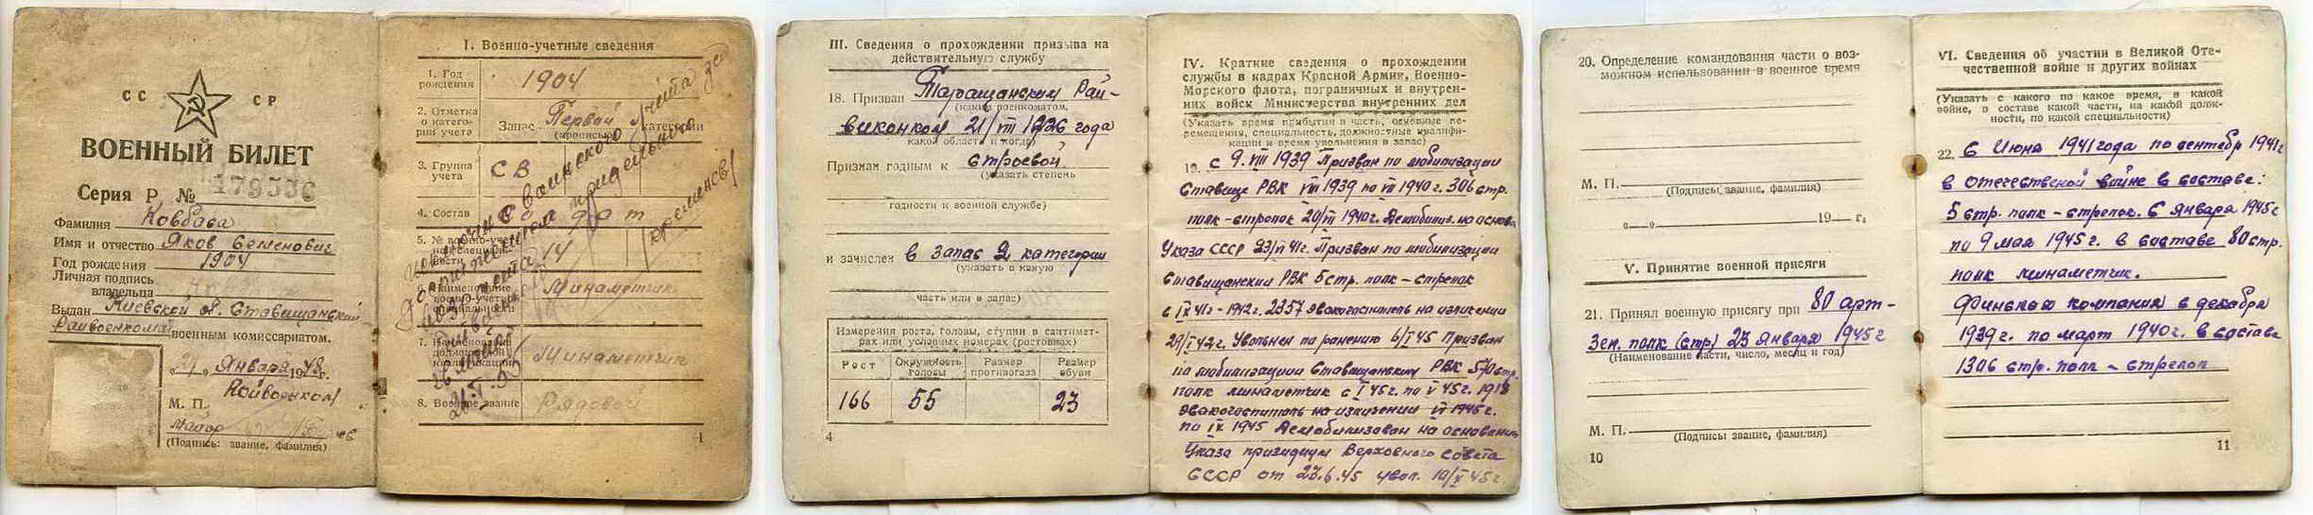 СС СР
ВОЕННЫЙ БИЛЕТ
Серия Р № 179536
Фамилия Ковбаса
Имя и отчество Яков Семенович
Год рождения 1904
Личная подпись
владельца
Выдан Киевской о. Ставищанский
Райвоенкомат военным комиссариатом.
Января 1948 г.
Райвоенком
М. П.
Майор
(Подпись: звание, фамилия)
I. Военно-учетные сведения
1. Год
рождения 1904
2. Отметка
о катего-
рии учета Запас Первой категории
(прописью)
3. Группа
учета СВ
4. Состав солдат
5. № военно-учет-
ной специаль-
ности 14
6. Наименование
военно-учетной
специальности Минаметчик
7. Наименование
должностной
квалификации Минаметчик
8. Военное звание Рядовой
Исключен с воинского учета за
достижением предельного
возраста
1
III. Сведения о прохождении призыва на
действительную службу
18. Призван Таращанским Рай-
(каким военкоматом,
виконком 21/VIII 1926 года
какой области и когда)
Признан годным к строевой
(указать степень
годности к военной службе)
и зачислен в запас 2 категории
(указать в какую
часть или в запас)
Измерения роста, головы, ступни в сантимет-
рах или условных номерах (ростовках)
Рост Окружность головы Размер противогаза Размер обуви
166 55 23
4
IV. Краткие сведения о прохождении
службы в кадрах Красной Армии, Военно-
Морского флота, пограничных и внутрен-
них войск Министерства внутренних дел
(Указать время прибытия в часть, основные пе-
ремещения, специальность, должностные квалифи-
кации и время увольнения в запас)
19. с 9.VIII 1939 Призван по мобилизации
Ставище РВК VIII 1939 по VII 1940 г. 306 стр.
полк-стрелок 20/VII 1940г. Демобилиз. на основа
Указа СССР 23/VI 41г. Призван по мобилизации
Ставищанский РВК 5 стр. полк - стрелок
с IX 41г - 1942г. 2357 эвакогоспиталь на излечении
29/I 42г. Уволен по ранению 6/I 45 Призван
по мобилизации Ставищанским РВК 570 стр.
полк минаметчик с I 45г. по V 45г. 1918
эвакогоспиталь на излечении VI 1945г.
по IX 1945 Демобилизован на основании
Указа призидиум Верховного совета
СССР от 23.6.45 увол. 10/X 45г
20. Определение командования части о воз-
можном использовании в военное время
М. П.
(Подписы звание, фамилия)
" " 19 г.
V. Принятие военной присяги
21. Принял военную присягу при 80 арт-
зен. полк (стр) 23 января 1945г
(Наименование части, число, месяц и год)
М. П.
(Подписы звание, фамилия)
10
VI. Сведения об участии в Великой Оте-
чественной войне и других войнах
(Указать с какого по какое время, в какой
войне, в составе какой части, на какой долж-
ности, по какой специальности)
22. С Июня 1941 года по сентябр 1941г
в отечественой войне в составе:
5 стр. полк - стрелок. С января 1945г
по 9 мая 1945г. в составе 80 стр.
полк минаметчик.
Финькая компания с декабря
1939г. по март 1940г. в составе
1306 стр. полк - стрелок
11